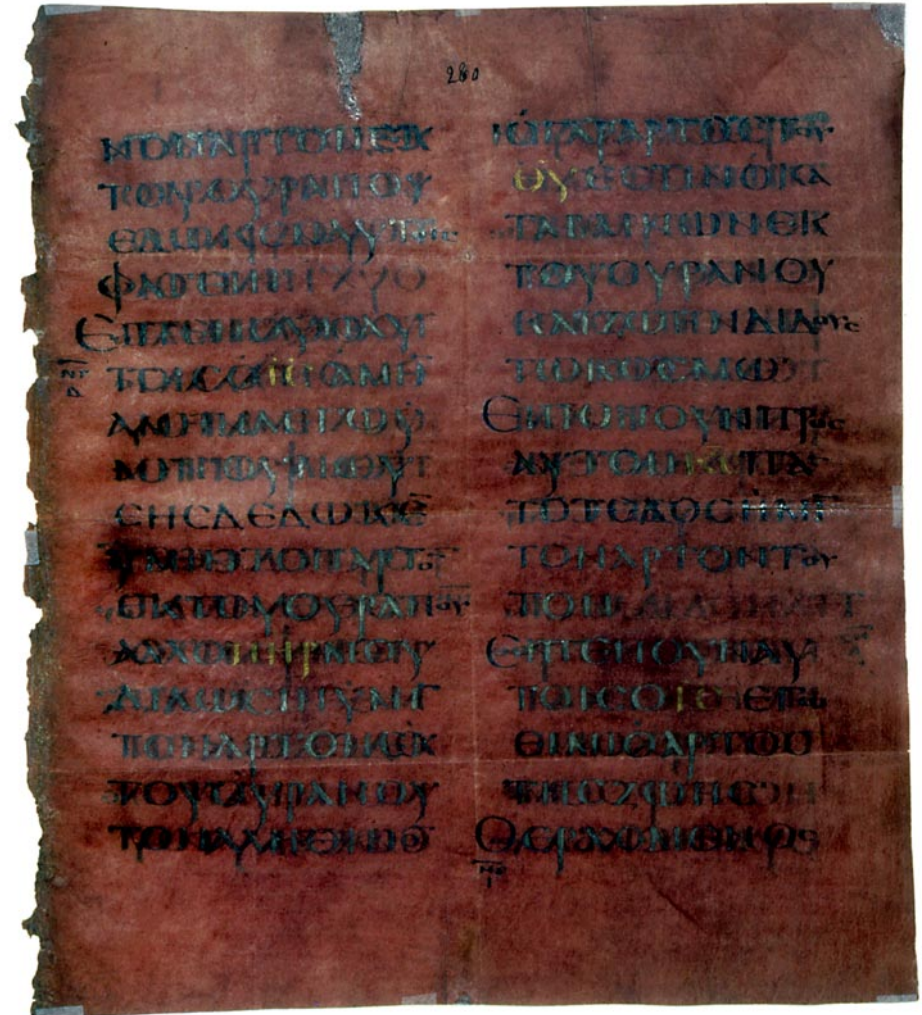 280
ΑΡΤΟΝ ΕΚ
ΤΟΥ ΟΥΡΑΝΟΥ
ΕΔΩΚΕΝ ΑΥΤΟΙΣ
ΦΑΓΕΙΝ
ΕΙΠΕΝ ΟΥΝ ΑΥ
ΤΟΙΣ Ο ΙΣ ΑΜΗ̅
ΑΜΗΝ ΛΕΓΩ Ϋ
ΜΙΝ ΟΥ ΜΩΥ
ΣΗΣ ΔΕΔΩΚΕ̅
ΥΜΙΝ ΤΟΝ ΑΡΤΟ̅
ΕΚ ΤΟΥ ΟΥΡΑΝΟΥ
ΑΛΛ Ο ΠΗΡ ΜΟΥ
ΔΙΔΩΣΙΝ ΥΜΙ̅
ΤΟΝ ΑΡΤΟΝ ΕΚ
ΤΟΥ ΟΥΡΑΝΟΥ
ΤΟΝ ΑΛΗΘΙΝΟ̅
Ο ΓΑΡ ΑΡΤΟΣ ΤΟΥ
ΘΥ ΕΣΤΙΝ Ο ΚΑ
ΤΑΒΑΙΝΩΝ ΕΚ
ΤΟΥ ΟΥΡΑΝΟΥ
ΚΑΙ ΖΩΗΝ ΔΙΔΟΥΣ
ΤΩ ΚΟΣΜΩ
ΕΙΠΟΝ ΟΥΝ ΠΡΟΣ
ΑΥΤΟΝ ΚΕ ΠΑ̅
ΤΟΤΕ ΔΟΣ ΗΜΙ̅
ΤΟΝ ΑΡΤΟΝ ΤΟΥ
ΤΟΝ
ΕΙΠΕΝ ΟΥΝ ΑΥ
ΤΟΙΣ Ο ΙΣ ΕΓΩ
ΕΙΜΙ Ο ΑΡΤΟΣ
ΤΗΣ ΖΩΗΣ
Ο ΕΡΧΟΜΕΝΟΣ